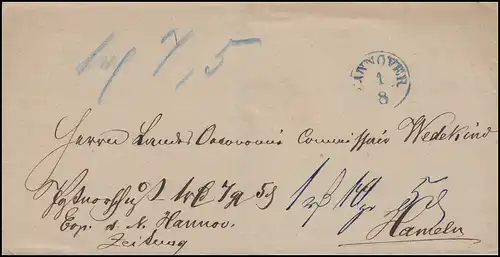 1 7, 5
HANNOVER
1
8
Herrn Landes Oeconomie Commissair Wedekind
Postvorschuß 1 7 5
1 10 5
Exp. d. N. Hannov.
Zeitung
Hameln